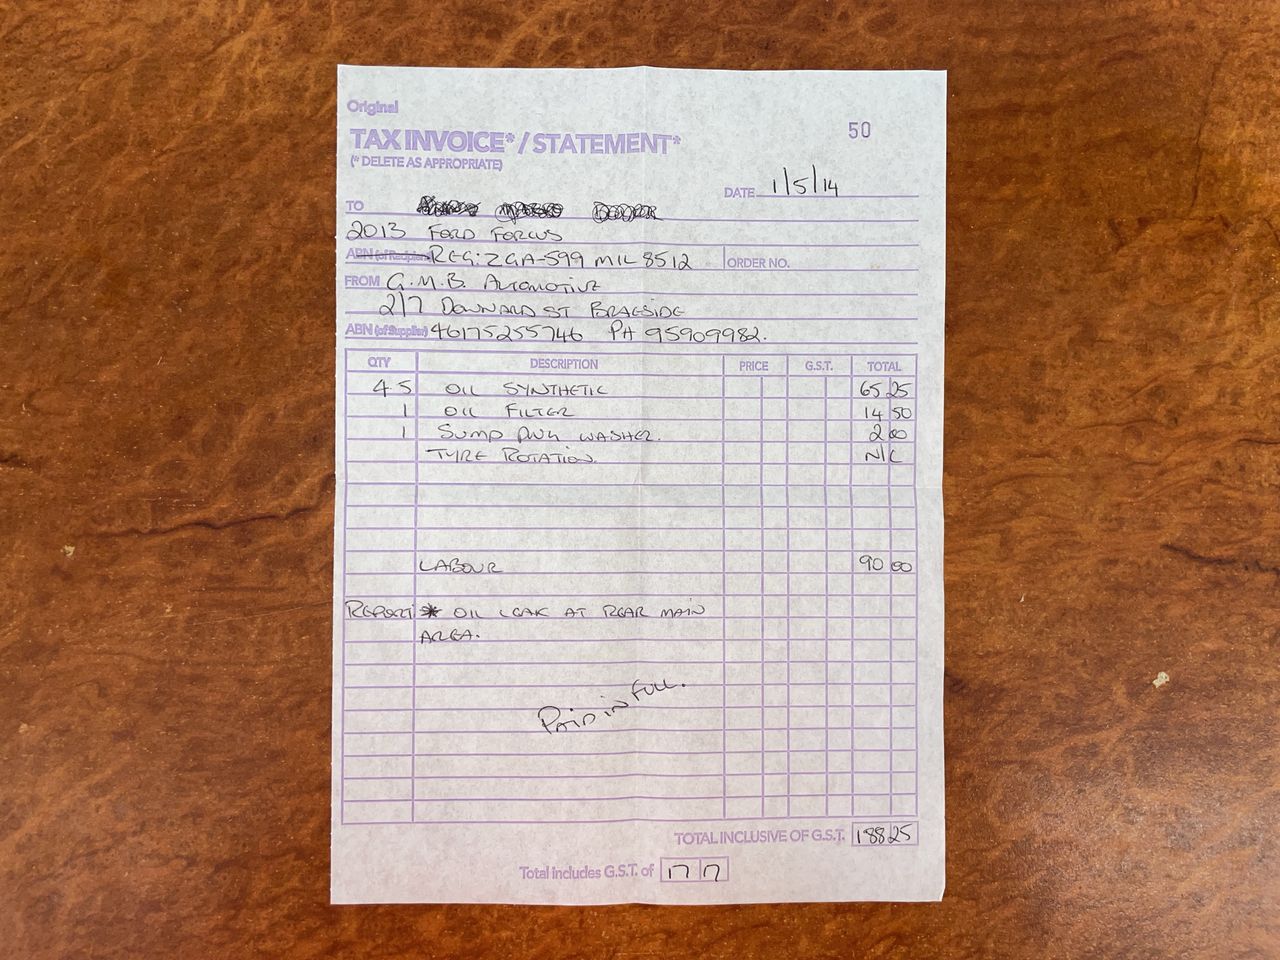 Original
TAX INVOICE* / STATEMENT*
50
(* DELETE AS APPROPRIATE)
DATE 1/5/14
TO
2013 FORD FORCUS
ABN (of Recipient) REG: ZGA-599 MIL 8512 ORDER NO.
FROM G.M.B. AUTOMOTIVE
2/7 DOWNARD ST BRAESIDE
ABN (of Supplier) 46175255746 PH 95909982.
QTY DESCRIPTION PRICE G.S.T. TOTAL
4.5 OIL SYNTHETIC 65 25
1 OIL FILTER 14 50
1 SUMP PLUG WASHER. 2 00
TYRE ROTATION. N/C
LABOUR 90 00
REPORT: * OIL LEAK AT REAR MAIN
AREA.
PAID IN FULL.
TOTAL INCLUSIVE OF G.S.T. 188 25
Total includes G.S.T. of 17 17